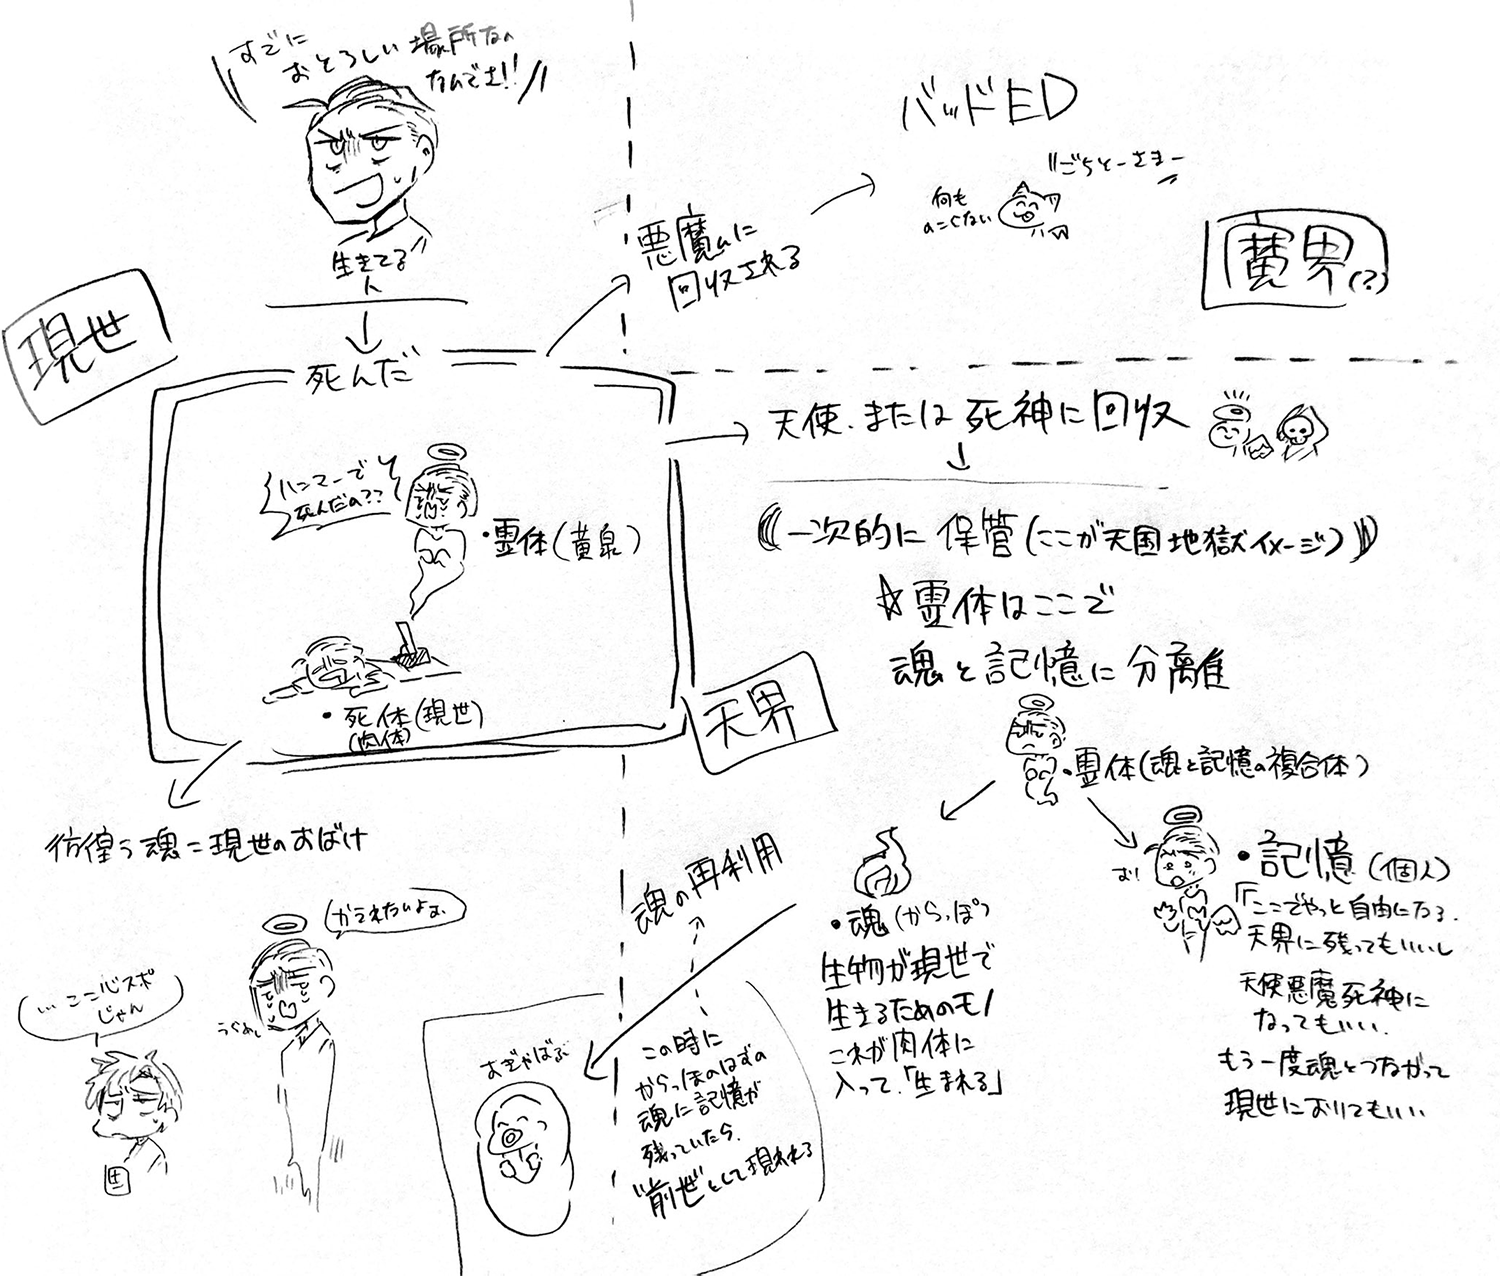 すでに
おとろしい場所なの
なんでさ!!
生きてる
人
現世
死んだ
ハンマーで
死んだの??
・霊体(黄泉)
・死体(現世)
(肉体)
彷徨う魂=現世のおばけ
かえりたいよぉ
うらめし
…ここ心スポ
じゃん
生
悪魔に
回収される
バッドED
何も
のこらない
ごちそーさまー
魔界(?)
天使、または死神に回収
一次的に保管(ここが天国地獄イメージ)
☆霊体はここで
魂と記憶に分離
天界
・霊体(魂と記憶の複合体)
・魂(からっぽ)
生物が現世で
生きるためのモノ
これが肉体に
入って、「生まれる」
お!
・記憶(個人)
「ここでやっと自由になる。
天界に残ってもいいし
天使悪魔死神に
なってもいい、
もう一度魂とつながって
現世におりてもいい
魂の再利用
おぎゃばぶ
この時に
からっぽのはずの
魂に記憶が
残っていたら、
"前世"として現れる